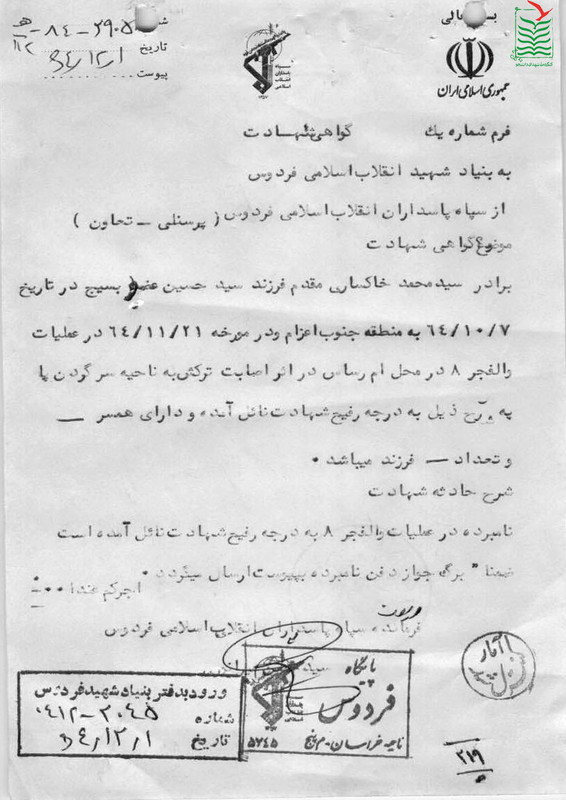 بسمه تعالی
جمهوری اسلامی ایران
سپاه پاسداران انقلاب اسلامی
تاریخ
پیوست
فرم شماره یك گواهی شهادت
به بنیاد شهید انقلاب اسلامی فردوس
از سپاه پاسداران انقلاب اسلامی فردوس ( پرسنلی - تعاون )
موضوع گواهی شهادت
برادر سید محمد خاکساری مقدم فرزند سید حسین عضو بسیج در تاریخ
۶۴/۱۰/۷ به منطقه جنوب اعزام و در مورخه ۶۴/۱۱/۲۱ در عملیات
والفجر ۸ در محل ام رساس در اثر اصابت ترکش به ناحیه سر گردن پا
به شرح ذیل به درجه رفیع شهادت نائل آمده و دارای همسر —
و تعداد — فرزند میباشد .
شرح حادثه شهادت
نامبرده در عملیات والفجر ۸ به درجه رفیع شهادت نائل آمده است
ضمنا" برگه جواز دفن نامبرده بپیوست ارسال میگردد .
اجرکم عندا...
فرمانده سپاه پاسداران انقلاب اسلامی فردوس
سید
پایگاه
فردوس
ناحیه خراسان -
۵۷۴۵
ورود بدفتر بنیاد شهید فردوس
شماره ۰۴۱۲-۲۰۴۵
تاریخ
آثار
۲۱۹